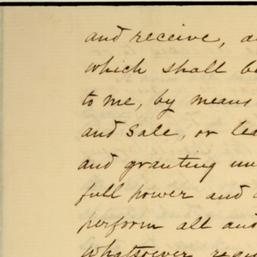 and receive, a
which shall be
to me, by means
and Sale, or lea
and granting un
full power and
perform all and
whatsoever requ